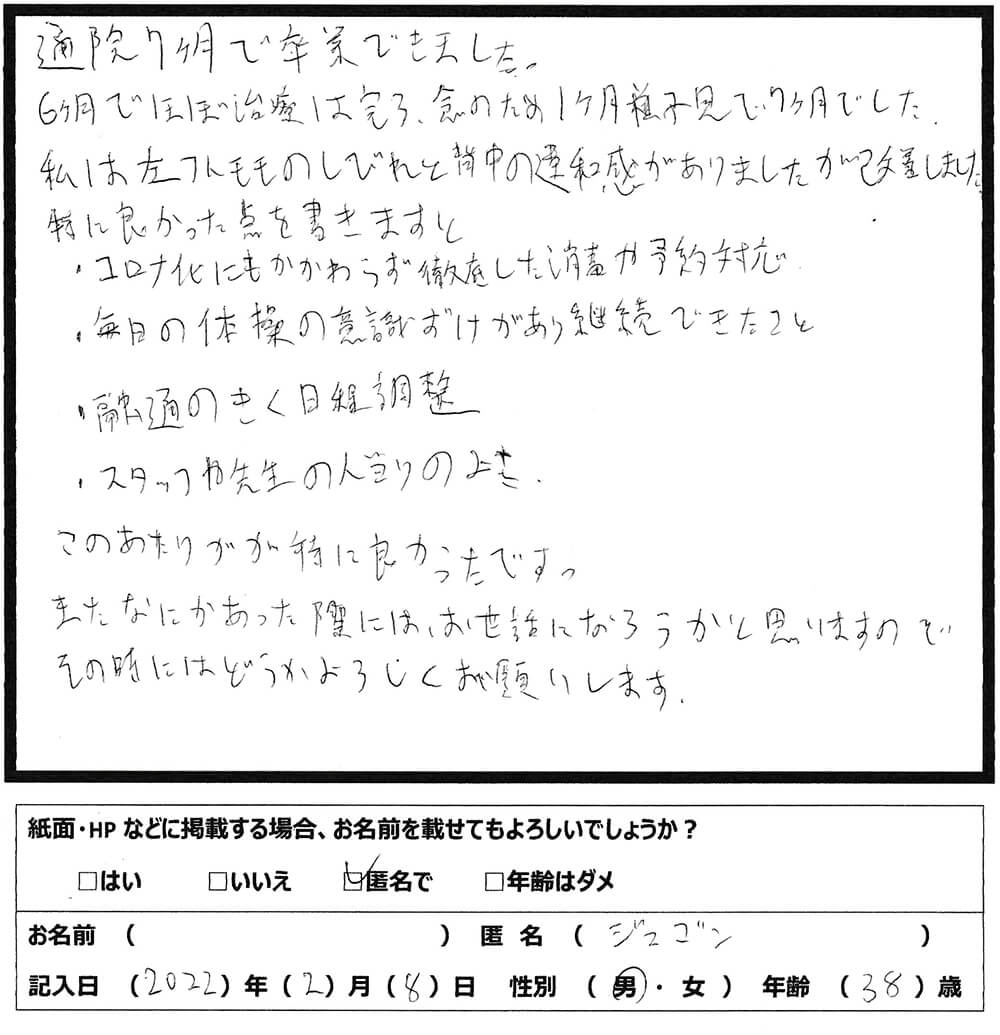 通院7ヶ月で卒業できました。
6ヶ月でほぼ治療は完了、念のため1ヶ月様子見で、7ヶ月でした。
私は左フトモモのしびれと背中の違和感がありましたが改善しました
特に良かった点を書きますと
・コロナ化にもかかわらず徹底した消毒や予約対応
・毎日の体操の意識ずけがあり継続できたこと
・融通のきく日程調整
・スタッフや先生の人当りのよさ.
このあたりがが特に良かったです。
またなにかあった際には、お世話になろうかと思いますので
その時にはどうかよろしくお願いします.
紙面・HPなどに掲載する場合、お名前を載せてもよろしいでしょうか？
□はい □いいえ ☑匿名で □年齢はダメ
お名前 （ ） 匿名 （ ジェゴン ）
記入日 （2022）年（2）月（8）日 性別 （男・女） 年齢 （38）歳